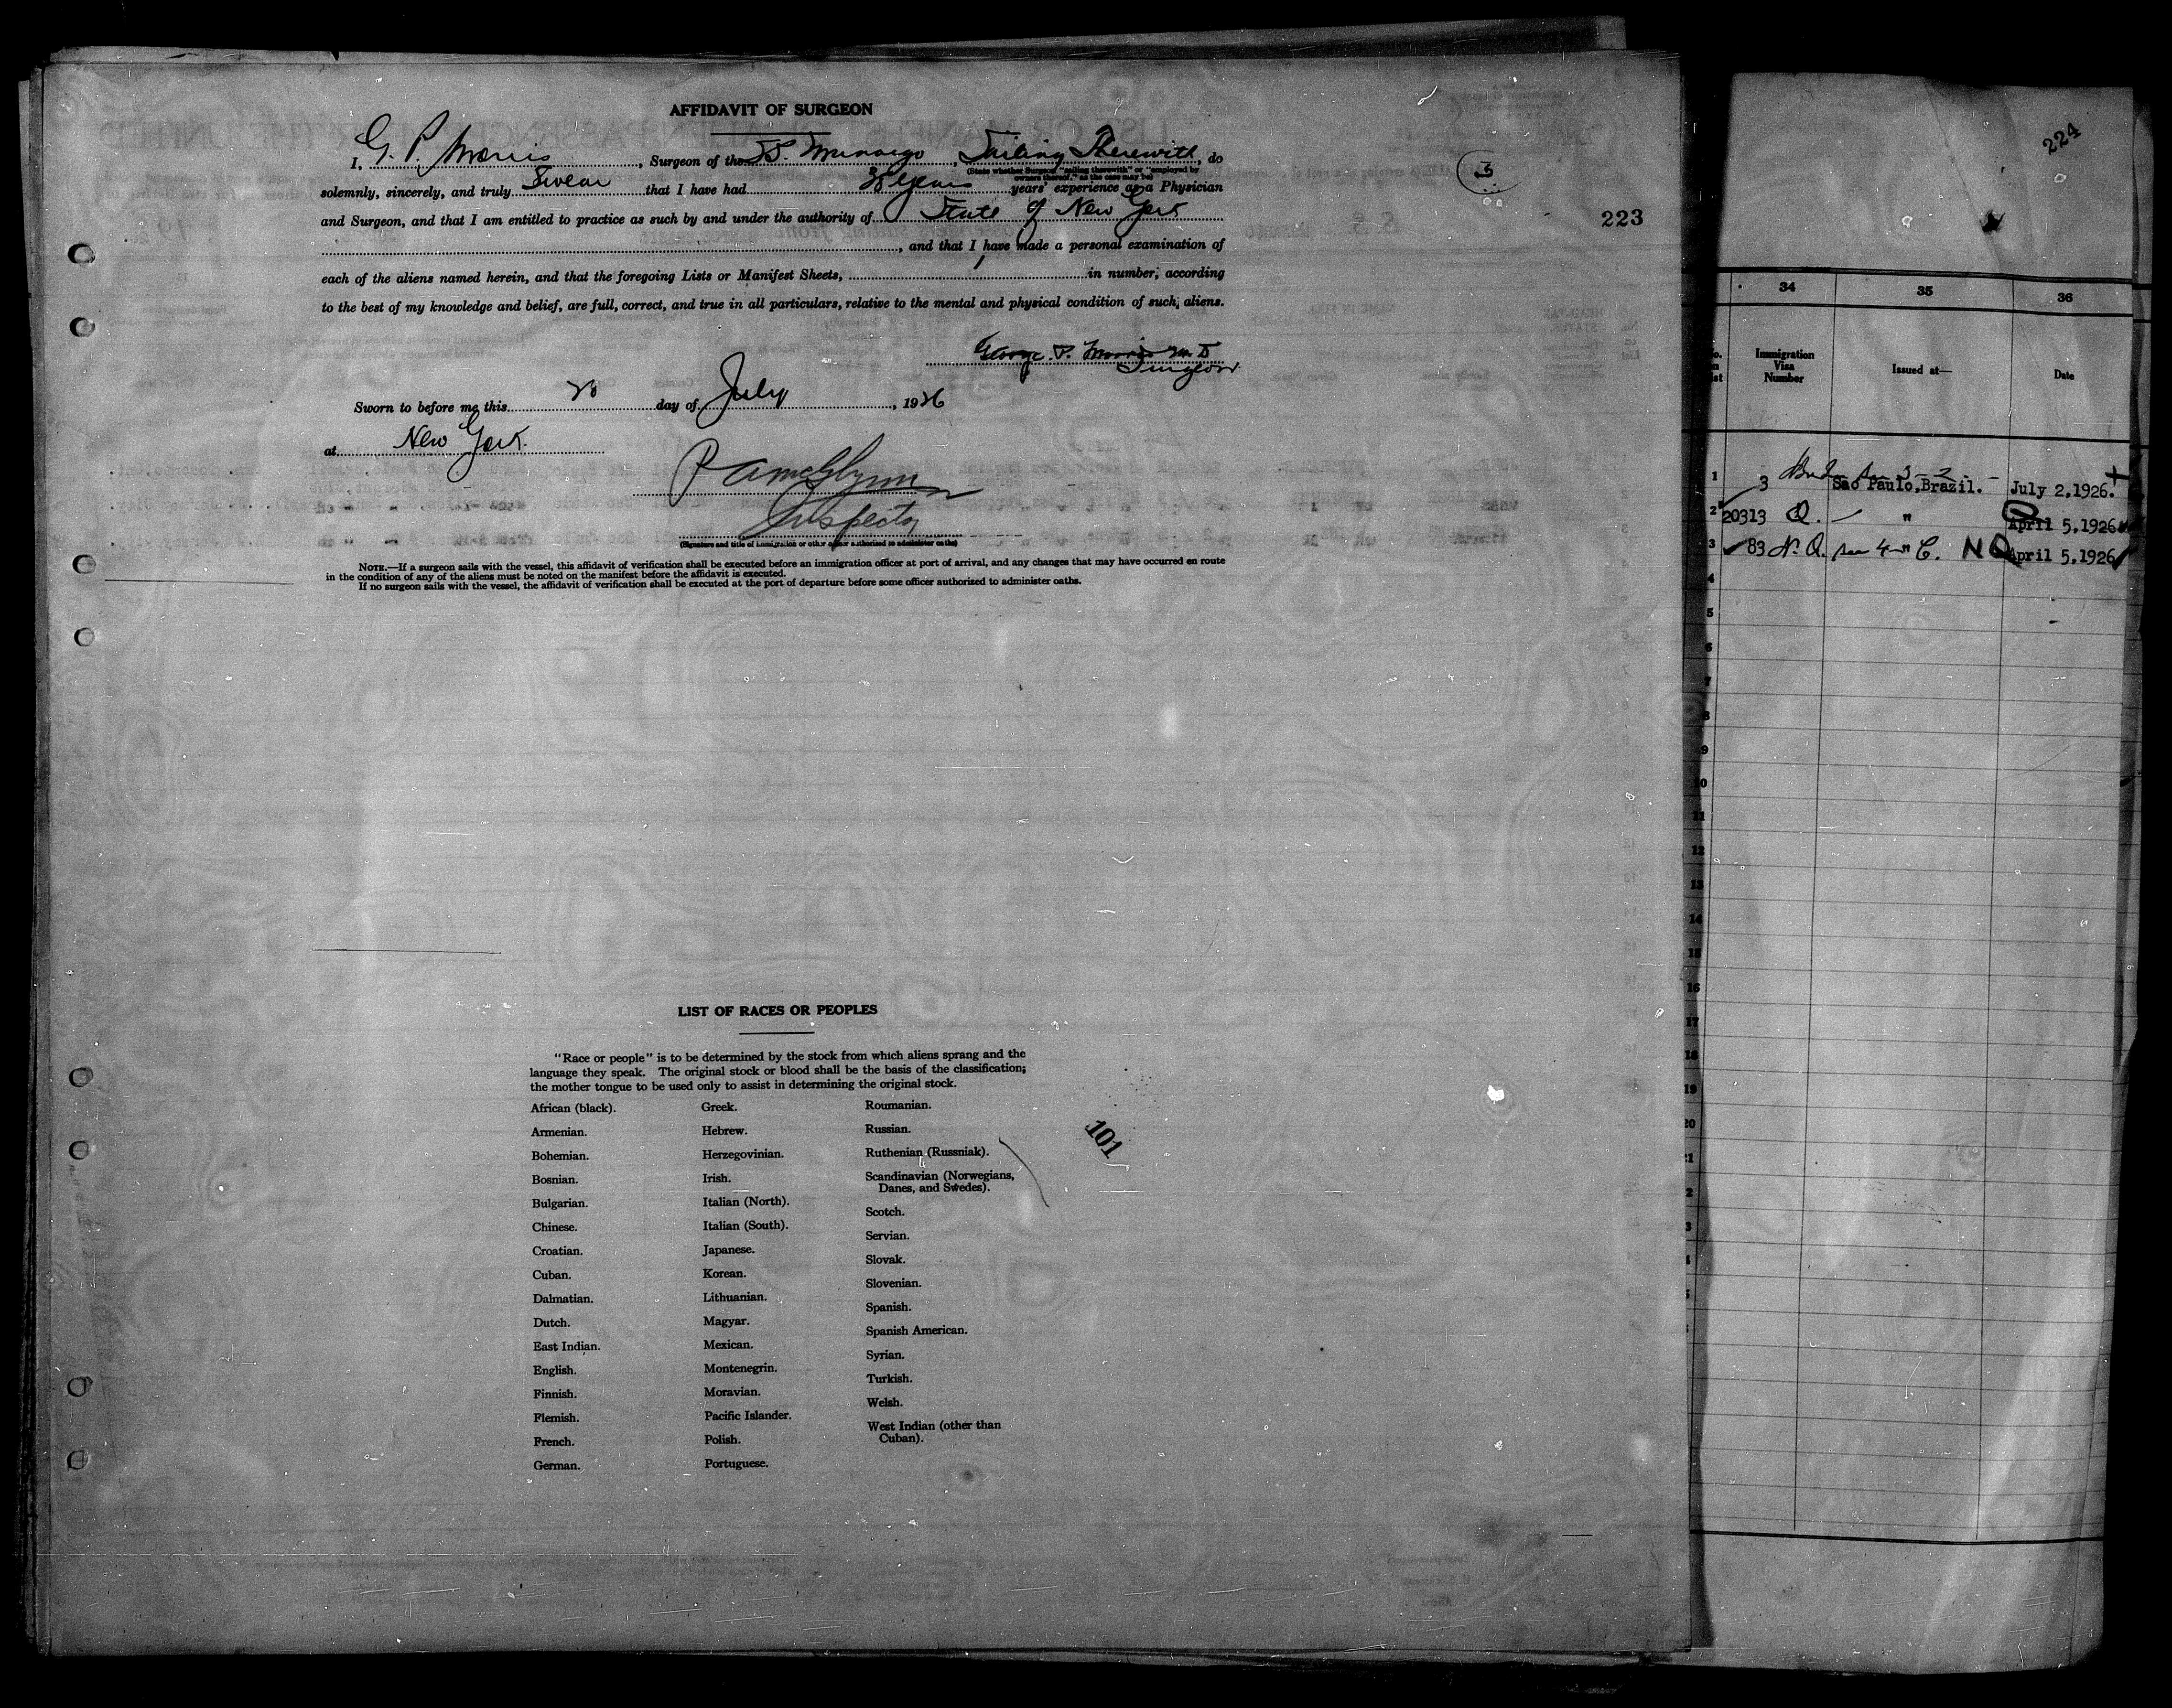 AFFIDAVIT OF SURGEON
I, G. P. Morris, Surgeon of the SS. Munargo, Sailing Therewith, do
(State whether Surgeon "sailing therewith" or "employed by
owners thereof," as the case may be)
solemnly, sincerely, and truly Swear that I have had 38 years years' experience as a Physician
and Surgeon, and that I am entitled to practice as such by and under the authority of State of New York
, and that I have made a personal examination of
each of the aliens named herein, and that the foregoing Lists or Manifest Sheets, 1 in number, according
to the best of my knowledge and belief, are full, correct, and true in all particulars, relative to the mental and physical condition of such aliens.
George. P. Morris M.D
Surgeon
Sworn to before me this day of July, 1926
at New York.
P A McGlynn
Inspector
(Signature and title of immigration or other officer authorized to administer oaths)
NOTE.—If a surgeon sails with the vessel, this affidavit of verification shall be executed before an immigration officer at port of arrival, and any changes that may have occurred en route
in the condition of any of the aliens must be noted on the manifest before the affidavit is executed.
If no surgeon sails with the vessel, the affidavit of verification shall be executed at the port of departure before some officer authorized to administer oaths.
3
223
LIST OF RACES OR PEOPLES
"Race or people" is to be determined by the stock from which aliens sprang and the
language they speak. The original stock or blood shall be the basis of the classification;
the mother tongue to be used only to assist in determining the original stock.
African (black).
Armenian.
Bohemian.
Bosnian.
Bulgarian.
Chinese.
Croatian.
Cuban.
Dalmatian.
Dutch.
East Indian.
English.
Finnish.
Flemish.
French.
German.
Greek.
Hebrew.
Herzegovinian.
Irish.
Italian (North).
Italian (South).
Japanese.
Korean.
Lithuanian.
Magyar.
Mexican.
Montenegrin.
Moravian.
Pacific Islander.
Polish.
Portuguese.
Roumanian.
Russian.
Ruthenian (Russniak).
Scandinavian (Norwegians,
Danes, and Swedes).
Scotch.
Servian.
Slovak.
Slovenian.
Spanish.
Spanish American.
Syrian.
Turkish.
Welsh.
West Indian (other than
Cuban).
101
224
34 35 36
Immigration
Visa
Number
Issued at—
Date
1 3 Sao Paulo, Brazil. July 2, 1926.
2 20313 Q. " April 5, 1926
3 83 N.Q. NQ April 5, 1926
4
5
6
7
8
9
10
11
12
13
14
15
16
17
18
19
20